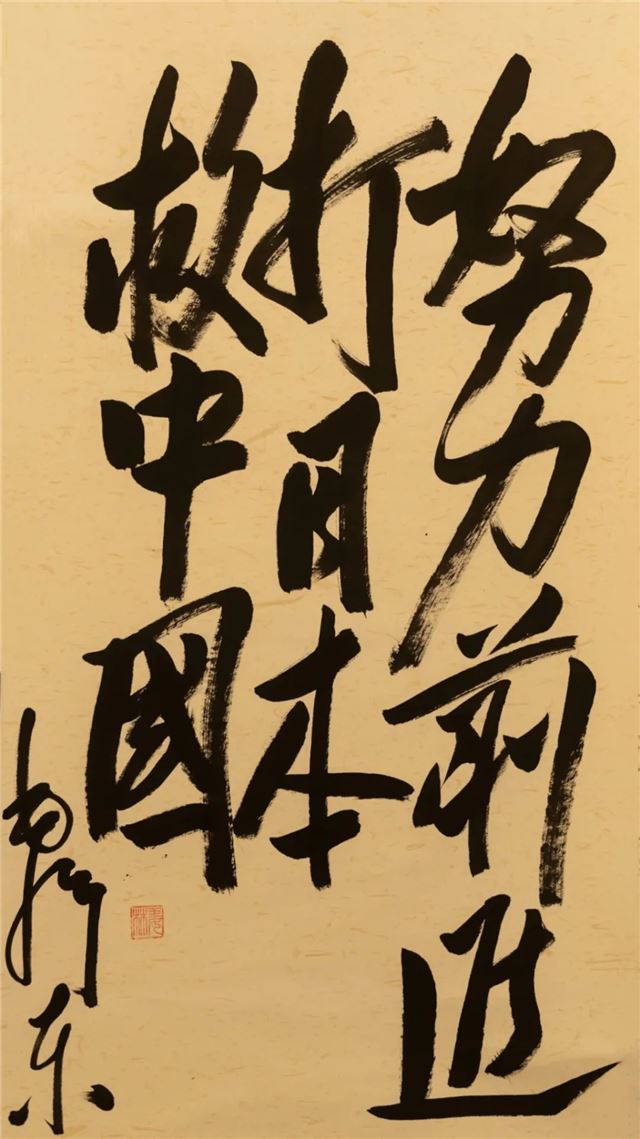 努力前進
打日本
救中國
毛澤東